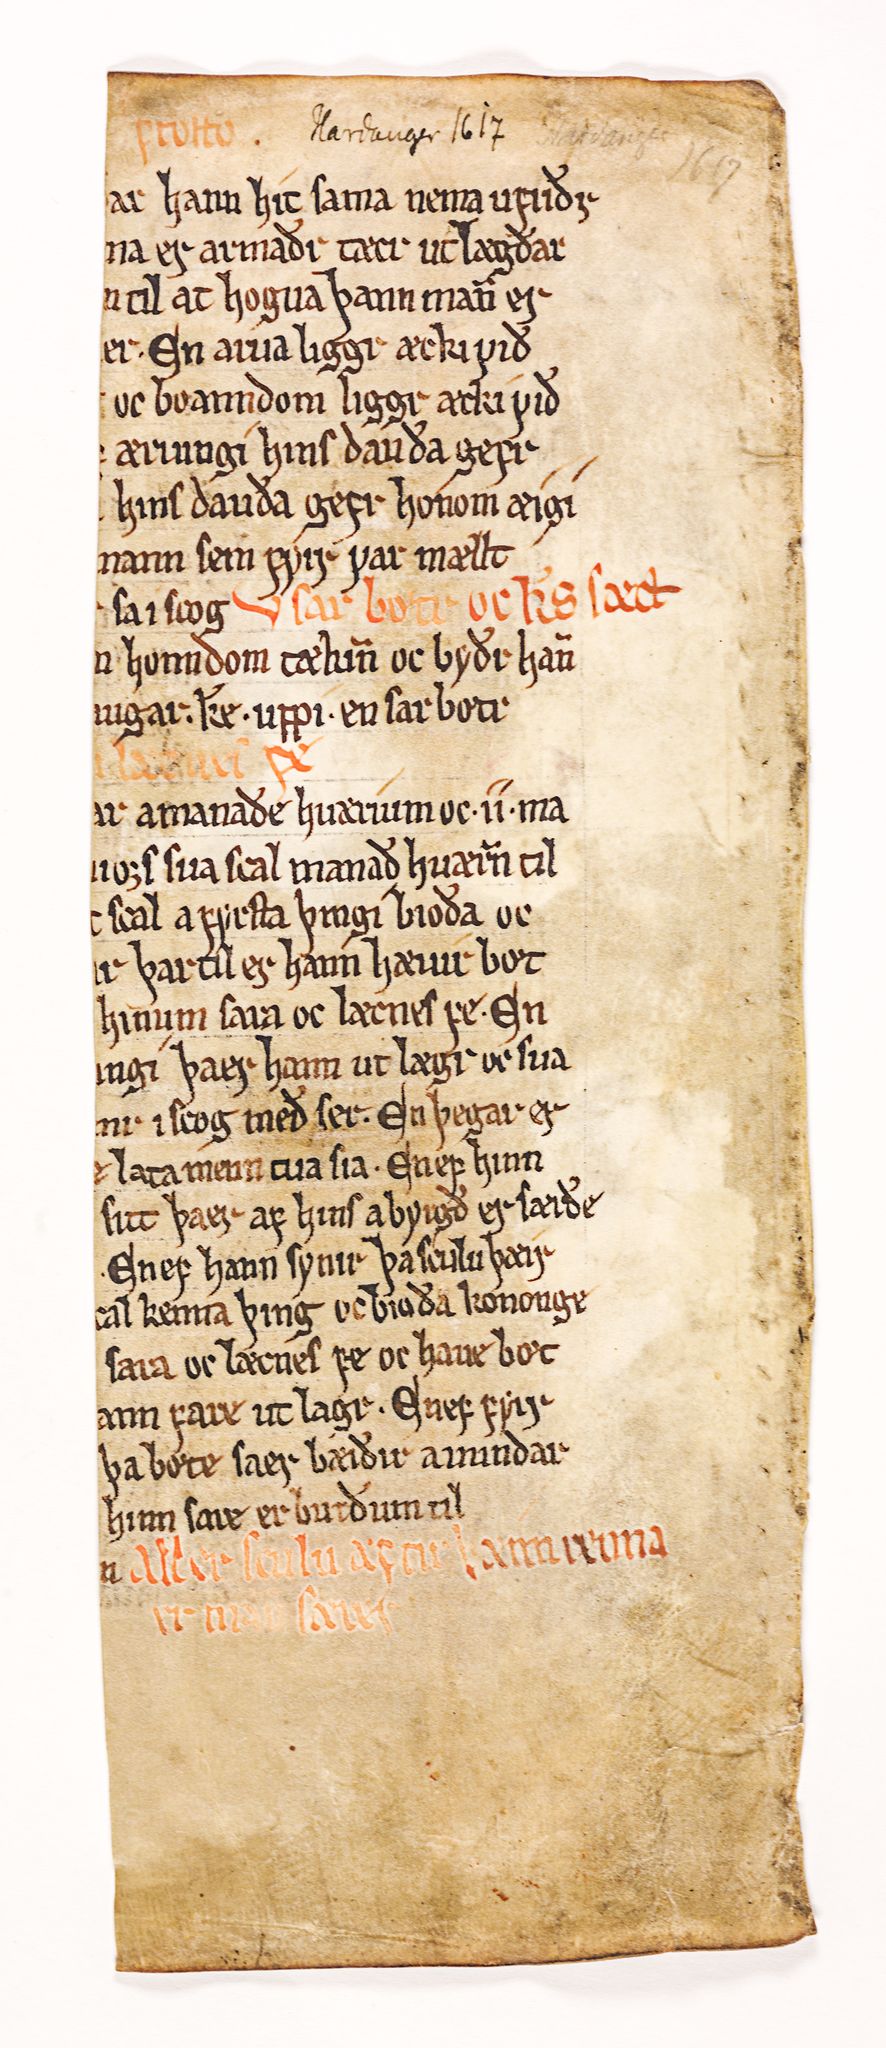 Hardanger 1617
1617
ar hann hit sama nema ufriðꝛ
na eꝛ armaðr tæcr ut lægðar
n til at hogua þann mañ eꝛ
er. En arua liggr æcki við
oc boanndom liggr æcki við
ærvingi hins dauða gefr
hins dauða gefr honom æigi
mann sem fyꝛiꝛ var mællt
sa i scog Vsar bøtr oc k̅s sæct
n honndom tækiñ oc byðr hañ
augar. k̅e. uppi. en sar bøtr
læcnes fe
ar a manaðe huærium oc .ii. ma
sua scal manað huæriũ til
scal a fyrsta þingi bioða oc
ar þar til eꝛ hann hævir bøt
hinum sara oc læcnes fe. En
ingi þa eꝛ hann ut lægr oc sua
nir i scog með ser. En þegar eꝛ
lata menn tua sia. En ef hinn
sitt þa eꝛ af hins abyrgð eꝛ særðe
. En ef hann synir þa sculu þæiꝛ
cal kenna þing oc bioða kononge
sara oc læcnes fe oc have bøt
ann fare ut lagr. En ef fyꝛiꝛ
þa bøte sa eꝛ bæiðir a mundar
hinn sare er burðum til
n aller sculu æftir þæim renna
er mañ særer